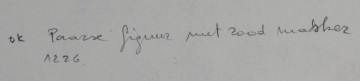 ok Paarse figuur met rood masker
1226